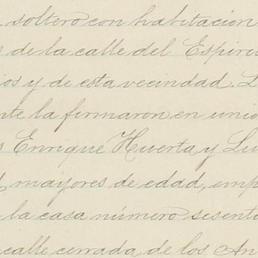 soltero con habitación
de la calle del Espíri
ios y de esta vecindad. L
te la firmaron en unio
Enrique Huerta y Lu
mayores de edad, emp
la casa número sesent
calle cerrada de los An